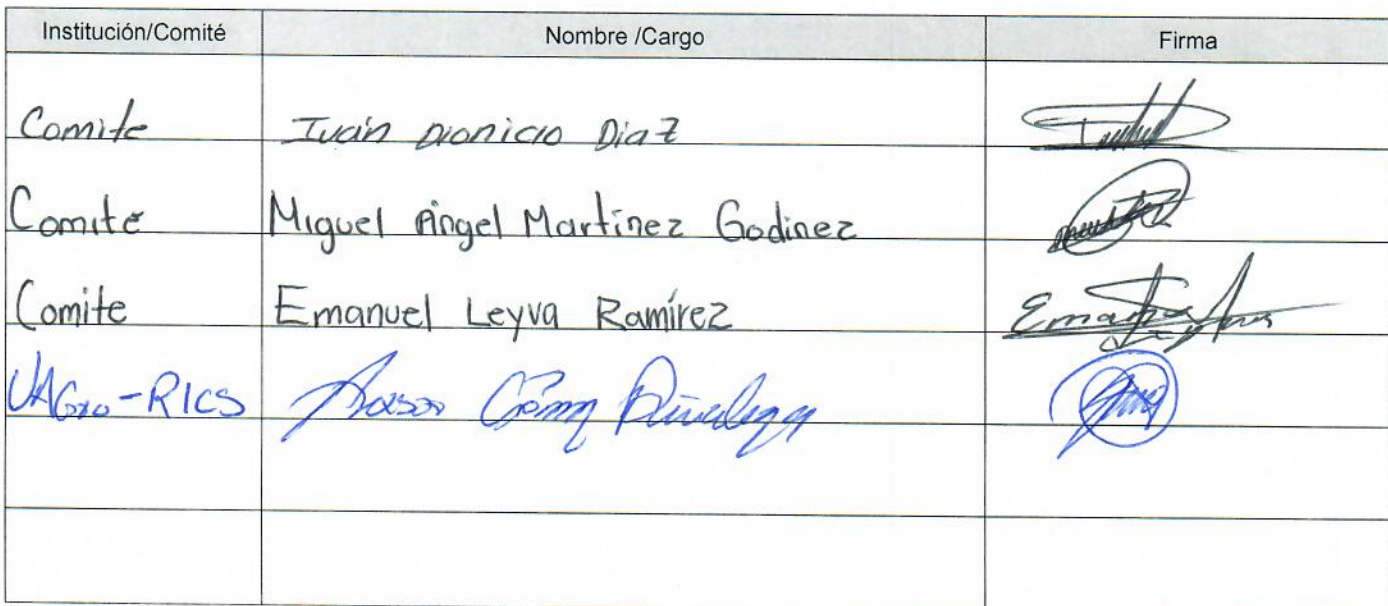 Institución/Comité Nombre /Cargo Firma
Comite Iván Dionicio Diaz
Comité Miguel Ángel Martínez Godinez
Comite Emanuel Leyva Ramírez
UAGro-RICS